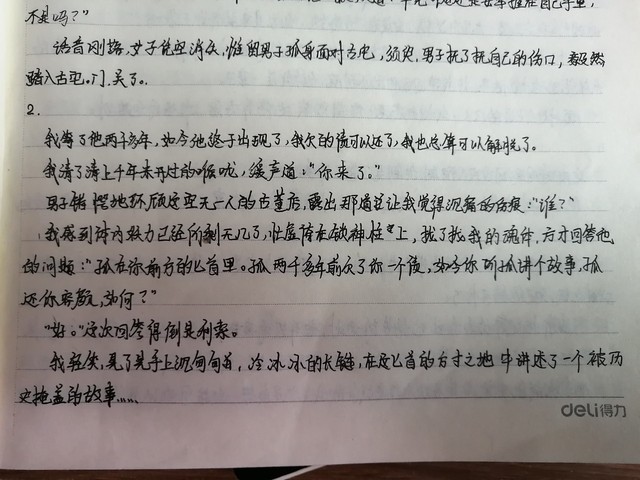 不是吗？”
语音刚落，女子凭空消失，惟留男子孤身面对古屯，须臾，男子抚了抚自己的伤口，毅然
踏入古屯，门，关了。
2.
我等了他两千多年，如今他终于出现了，我欠的债可以还了，我也总算可以解脱了。
我清了清上千年未开过的喉咙，缓声道：“你来了。”
男子错愕地环顾这空无一人的古董店，露出那道总让我觉得沉痛的伤痕：“谁？”
我感到体内致力已经所剩无几了，忙虚倚在锁神柱上，拢了拢我的魂体，方才回答他
的问题：“孤在你前方的匕首里。孤两千多年前欠了你一个债，如今你听孤讲个故事，孤
还你，如何？”
“好。”这次回答得倒是利索。
我轻笑，晃了晃手上沉甸甸，冷冰冰的长链，在这匕首的方寸之地中讲述了一个被历
史掩盖的故事……
deli得力